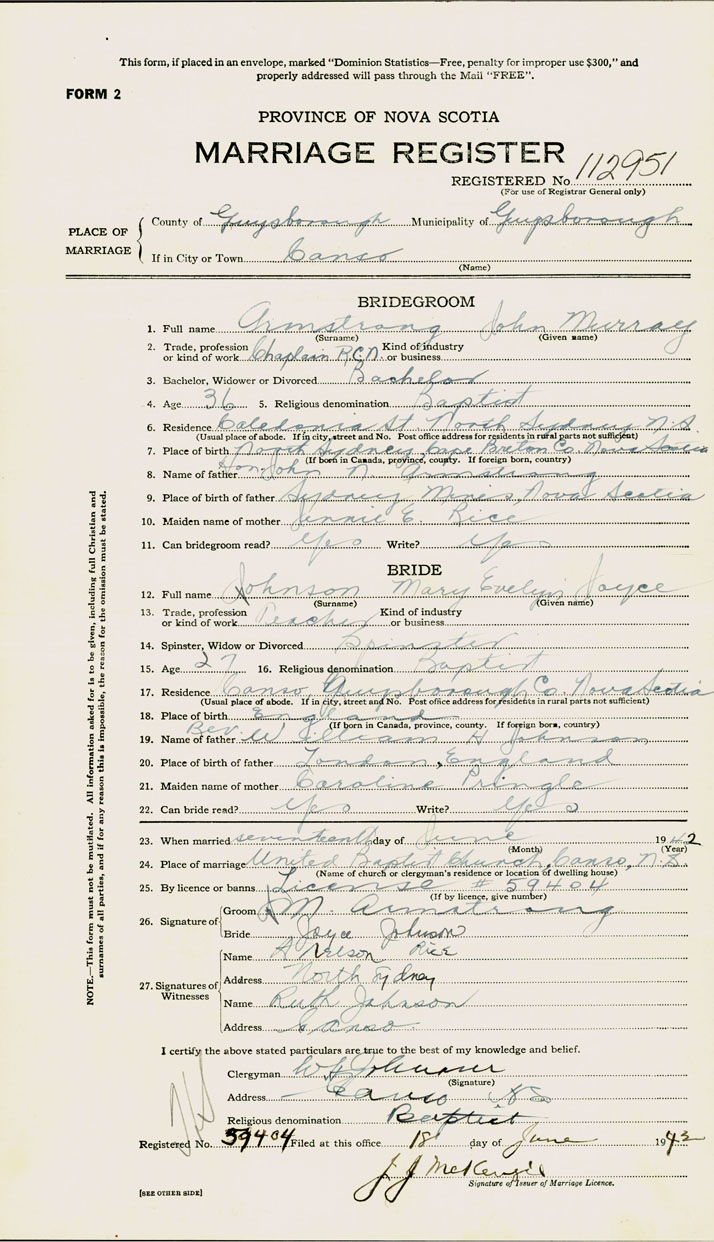 This form, if placed in an envelope, marked "Dominion Statistics—Free, penalty for improper use $300," and
properly addressed will pass through the Mail "FREE".
FORM 2
PROVINCE OF NOVA SCOTIA
MARRIAGE REGISTER
REGISTERED No. 112951
(For use of Registrar General only)
PLACE OF MARRIAGE
County of Guysborough Municipality of Guysborough
If in City or Town Canso
(Name)
BRIDEGROOM
1. Full name Armstrong John Murray
(Surname) (Given name)
2. Trade, profession or kind of work Chaplain R.C.N. Kind of industry or business
3. Bachelor, Widower or Divorced Bachelor
4. Age 36 5. Religious denomination Baptist
6. Residence Caledonia St. North Sydney N.S.
(Usual place of abode. If in city, street and No. Post office address for residents in rural parts not sufficient)
7. Place of birth North Sydney, Cape Breton Co. Nova Scotia
(If born in Canada, province, county. If foreign born, country)
8. Name of father Hon. John N. Armstrong
9. Place of birth of father Sydney Mines, Nova Scotia
10. Maiden name of mother Jennie E. Rice
11. Can bridegroom read? Yes Write? Yes
BRIDE
12. Full name Johnson Mary Evelyn Joyce
(Surname) (Given name)
13. Trade, profession or kind of work Teacher Kind of industry or business
14. Spinster, Widow or Divorced Spinster
15. Age 27 16. Religious denomination Baptist
17. Residence Canso, Guysborough Co. Nova Scotia
(Usual place of abode. If in city, street and No. Post office address for residents in rural parts not sufficient)
18. Place of birth England
(If born in Canada, province, county. If foreign born, country)
19. Name of father Rev. William H Johnson
20. Place of birth of father London, England
21. Maiden name of mother Caroline Pringle
22. Can bride read? Yes Write? Yes
23. When married seventeenth day of June 1942
(Month) (Year)
24. Place of marriage United Baptist Church, Canso, N.S.
(Name of church or clergyman's residence or location of dwelling house)
25. By licence or banns License # 59404
(If by licence, give number)
26. Signature of
Groom J M. Armstrong
Bride Joyce Johnson
27. Signatures of Witnesses
Name A Nelson Rice
Address North Sydney
Name Ruth Johnson
Address Canso
I certify the above stated particulars are true to the best of my knowledge and belief.
Clergyman Johnson
(Signature)
Address Canso NS
Religious denomination Baptist
Registered No. 59404 Filed at this office 18 day of June 1942
J J McKenzie
Signature of Issuer of Marriage Licence.
[SEE OTHER SIDE]
NOTE.—This form must not be mutilated. All information asked for is to be given, including full Christian and
surnames of all parties, and if for any reason this is impossible, the reason for the omission must be stated.